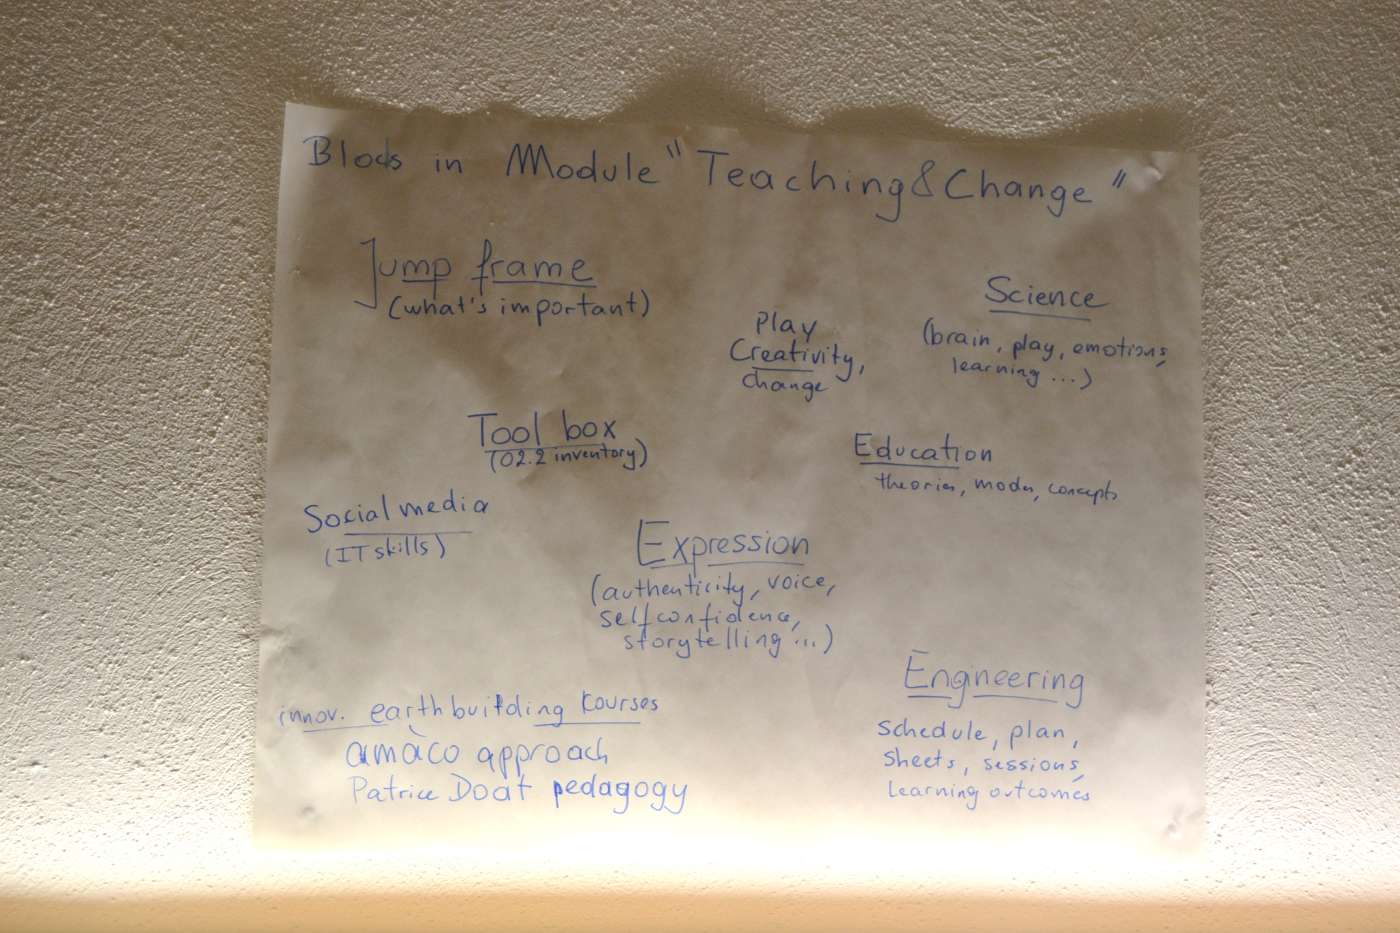 Blocks in Module "Teaching & Change"
Jump frame
(what's important)
Science
(brain, play, emotions,
learning ...)
Play
Creativity,
change
Tool box
(O2.2 inventory)
Education
theories, modes, concepts
Social media
(IT skills)
Expression
(authenticity, voice,
selfconfidence,
storytelling ...)
Engineering
schedule, plan,
sheets, sessions,
learning outcomes
innov. earthbuilding courses
amàco approach
Patrice Doat pedagogy